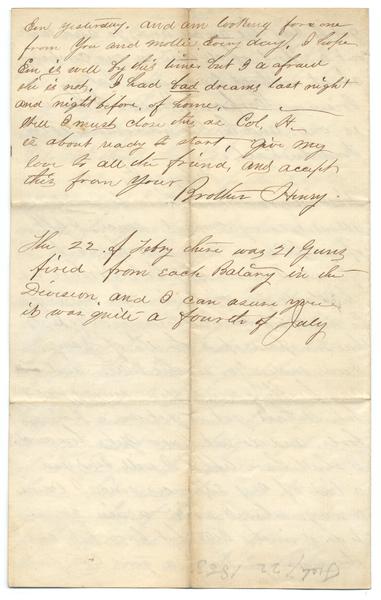 Em yesterday. and am looking for one
from You and mollie Every day. I hope
Em is well by this time. but I a afraid
she is not. I had bad dreams last night
and night before, of home.
Well I must close this as Col. H.
is about ready to start, give my
love to all the friend, and accept
this from your
Brother Henry.
The 22 of Febry there was 21 Guns
fired from each Batary in the
Division, and I can asure you
it was quite a fourth of July
Feb 22 1863